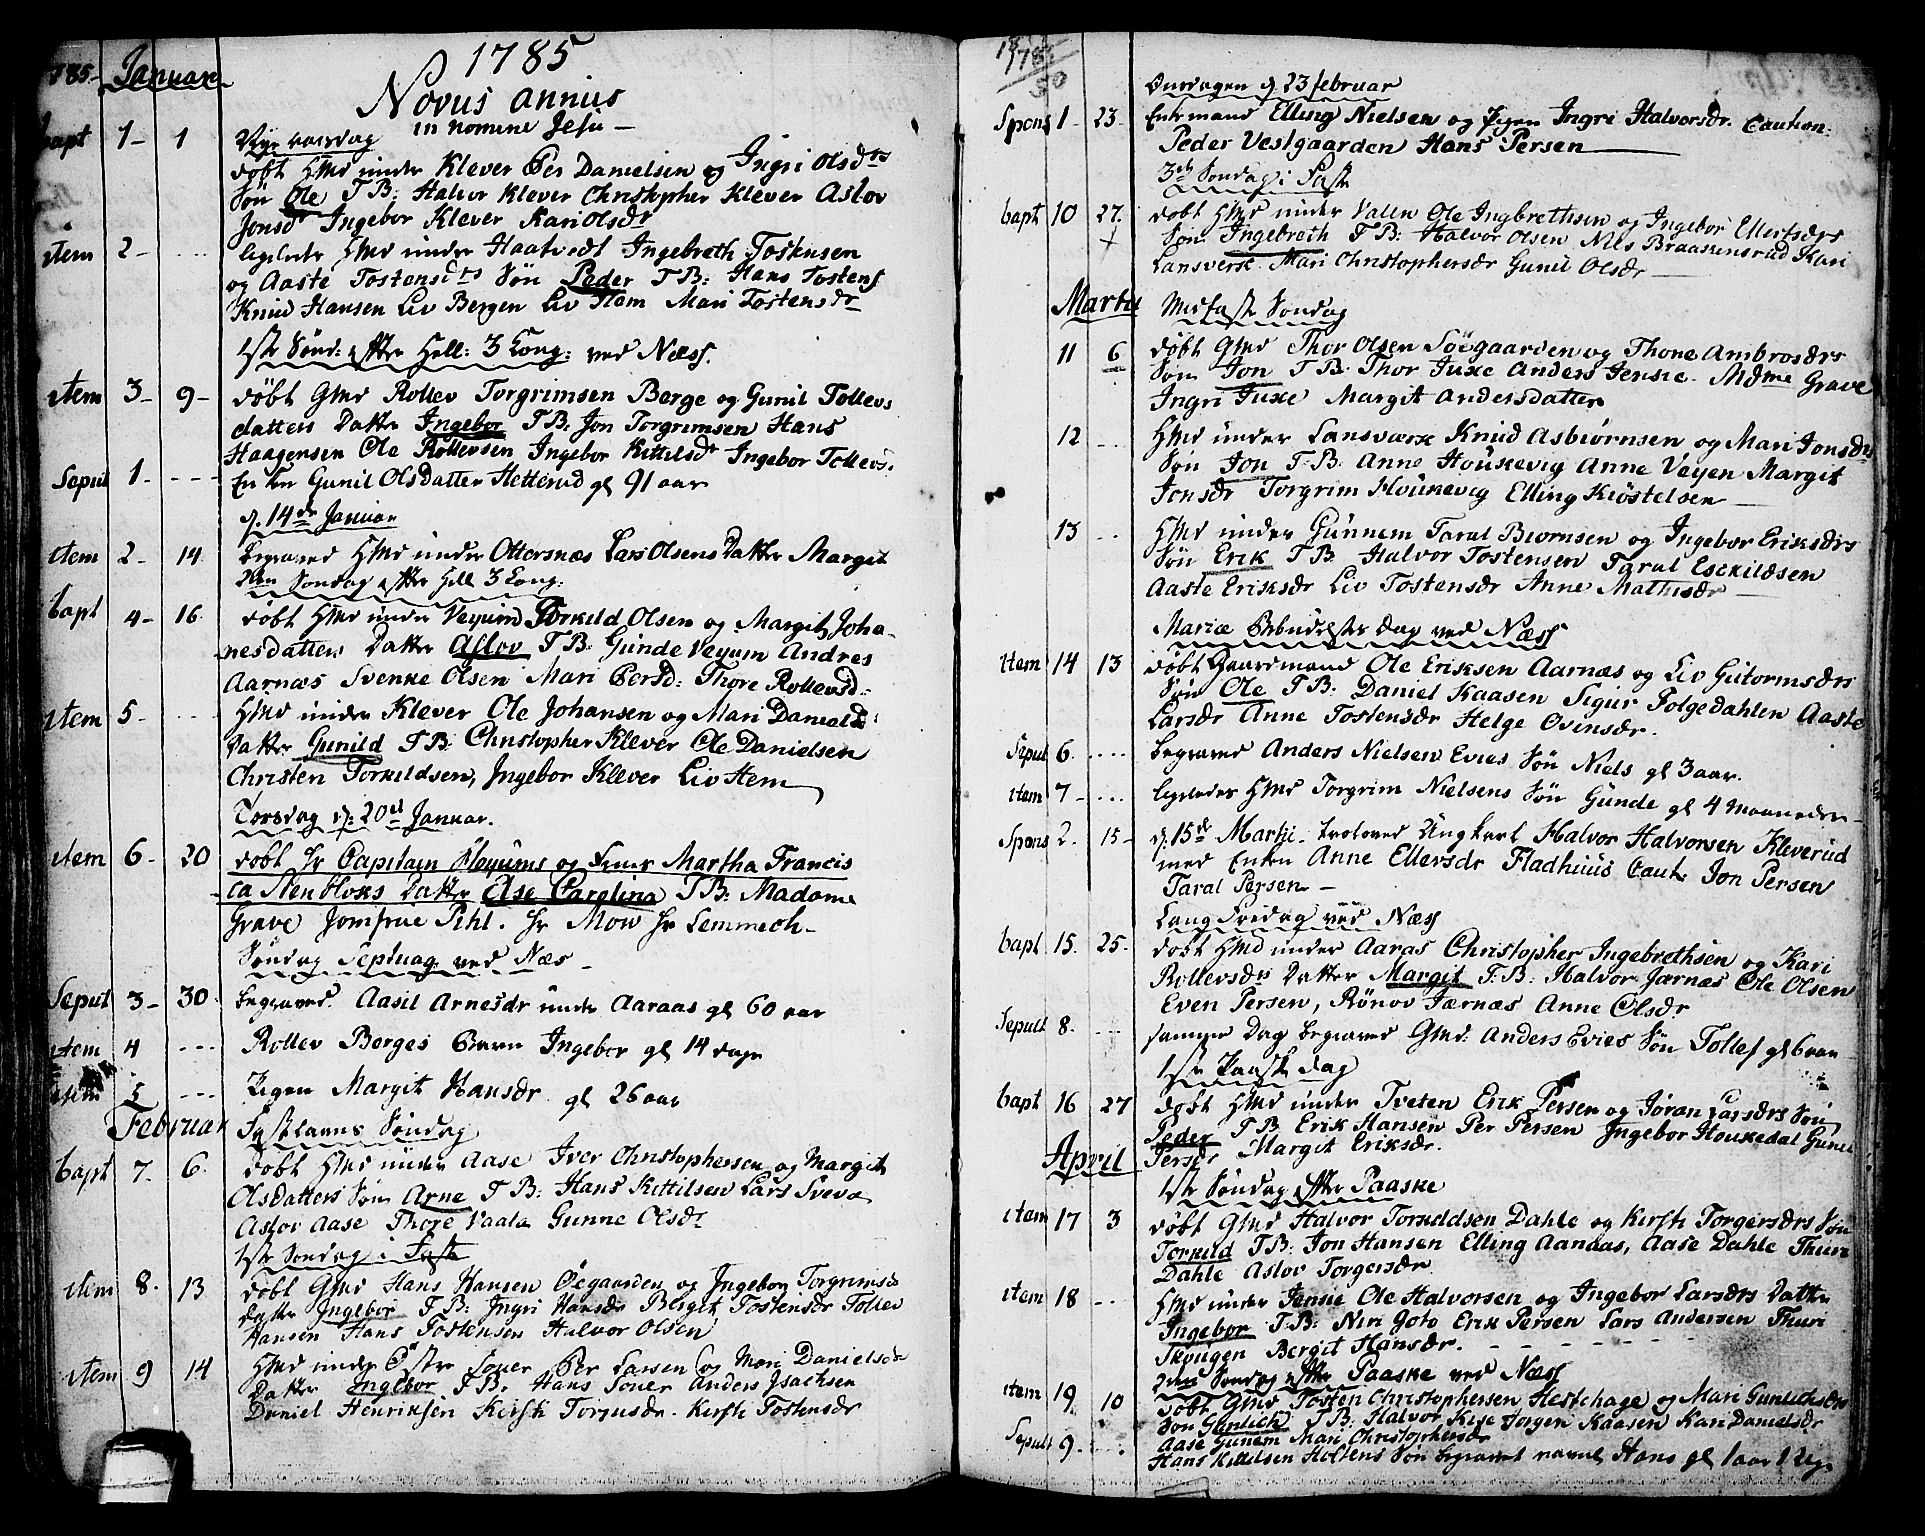 785. Januar
1785
Novus annus
in nomine Jesu
bapt 1 1 Nye aarsdag
døbt Hmd under Klever Per Danielsen og Ingri Olsdtr
Søn Ole T B: Halvor Klever Christopher Klever Aslov
Jonsdr Ingebor Klever Kari Olsdr
item 2 ligeledes Hmd under Haatvedt Ingebreth Tostensen
og Aaste Tostensdtrs Søn Peder T B: Hans Tostens
Knud Hansen Liv Bergen Liv Hem Mari Tostensdr
1ste Sönd: efter Hell: 3 Kong: ved Næss.
item 3 9 döbt Gmd Rollev Torgrimsen Berge og Gunil Tollevs
datters Datter Ingebor T B: Jon Torgrimsen Hans
Haagensen Ole Rollevsen Ingebor Kittilsdr Ingebor Tollevs.
Sepult 1 Enken Gunil Olsdatter Hetterud gl 91 aar
d. 14de Januar
item 2 14 begraved Hmd under Ottersnæs Lars Olsens Datter Margit
2den Søndag efter Hell 3 Kong:
bapt 4 16 döbt Hmd under Veyum Torkild Olsen og Margit Joha-
nesdatters Datter Aslov T B: Gunde Veyum Andres
Aarnæs Svenke Olsen Mari Persd: Thore Rollevsd:
item 5 Hmd under Klever Ole Johansen og Mari Danielsd:
Datter Gunild T B: Christopher Klever Ole Danielsen
Christen Torkildsen, Ingebor Klever Liv Hem
Torsdag d: 20de Januar.
item 6 20 döbt Hr Capitain Fleyums og Frue Martha Francis
ca Stenkloks Datter Else Carolina T B: Madame
Grave Jomfrue Pihl. Hr Mow Hr Lemmech
Søndag Septuag ved Næs
Sepult 3 30 begraved. Aasil Arnesdr under Aaraas gl 60 aar
item 4 Rollev Berges Barn Ingebor gl 14 dage
item 5 Pigen Margit Hansdr gl 26 aar
Februar Fastelavns Søndag
bapt 7 6 döbt Hmd under Aase Iver Christophersen og Margit
Olsdatters Søn Arne T B: Hans Kittilsen Lars Sveva
Aslov Aase Thore Vaala Gunne Olsdr
1ste Søndag i Faste
item 8 13 döbt Gmd Hans Hansen Öegaarden og Ingebor Torgrimsd
Datter Ingebor T B: Ingri Hansdr Bergit Tostensdr Tollev
Hansen Hans Tostensen Halvor Olsen
item 9 14 Hmd under Östre Touer Per Larsen og Mari Danielsdr
Datter Ingebor T B. Hans Touer Anders Isachsen
Daniel Henriksen Kirsti Torgusdr. Kirsti Tostensdr
1785
30
Onsdagen d 23 februar
Spons 1 23 Enkemand Elling Nielsen og Pigen Ingri Halvorsdr. Caution:
Peder Vestgaarden Hans Persen
3de Søndag i Faste
bapt 10 27. döbt Hmd under Valen Ole Ingbrethsen og Ingebor Ellefsdrs
Søn Ingebreth T B: Halvor Olsen Nils Braasunsrud Kari
Lansverk. Mari Christophersdr Gunil Olsdr
Martii Midfaste Søndag
11 6 döbt Gmd Thor Olsen Söegaarden og Thone Ambrosdrs
Søn Jon T B. Thor Juxe Anders Jensie. Mdme Grave
Ingri Juxe Margit Andersdatter
12 Hmd under Lansværk Knud Asbiörnsen og Mari Jonsdrs
Søn Jon T B. Anne Houkevig Anne Veyen Margit
Jonsdr Torgrim Houkevig Elling Kiöstelsen
13 Hmd under Gunnem Taral Biornsen og Ingebor Eriksdrs
Søn Erik T B. Halvor Tostensen Taral Eschildsen
Aaste Eriksdr Liv Tostensdr Anne Mathisdr
Mariæ Bebudelses Dag ved Næss
item 14 13 döbt Gaardmand Ole Eriksen Aarnæs og Liv Gutormsdrs
Søn Ole T B: Daniel Kaasen Sigur Folgedahlen Aaste
Larsdr Anne Tostensdr Helge Ovinsdr.
Sepul 6. begraved Anders Nielsen Evies Søn Niels gl 3 aar.
item 7 ligeledes Hmd Torgrim Nielsens Søn Gunde gl 4 maaneder
Spons 2. 15 d. 15de Martii trolovед Ungkarl Halvor Halvorsen Kleverud
med Enken Anne Ellevsdr Fladhuus Caut: Jon Persen
Taral Persen
Lang Fredag ved Næss
bapt. 15. 25. döbt Hmd under Aaras Christopher Ingebrethsen og Kari
Rollevsdrs Datter Margit T. B: Halvor Jarnæs Ole Olsen
Even Persen, Rönov Jærnæs Anne Olsdr
Sepult 8. samme Dag begraved Gmd: Anders Evies Søn Tollef gl 6 aar
1ste Paaske dag
bapt 16 27 döbt Hmd under Tveten Erik Persen og Jöran Larsdrs Søn
Peder T B Erik Hansen Per Persen Ingebor Houkedal Gunil
Persdr Margit Eriksdr.
April 1ste Søndag efter Paaske
item 17 3 döbt Gmd Halvor Torkildsen Dahle og Kirsti Torgersdrs Søn
Torkild T B: Jon Hansen Elling Aanaas, Aase Dahle Thuri
Dahle Aslov Torgersdr
item 18 Hmd under Jensie Ole Halvorsen og Ingebor Larsdrs Datter
Ingebor T B: Niri Goto Erik Persen Lars Andersen Thuri
Skougen Bergit Hansdr.
2den Søndag efter Paaske ved Næss
item 19. 10 döbt Gmd Tosten Christophersen Hestehage og Mari Gunlichsdrs
Søn Gunlich T B: Halvor Kise Jorgen Kaasen Kari Danielsdr
Aase Gunem Mari Christophersdr
Sepult 9. Hans Kittilsen Holtens Søn begravet navnl Hans gl 1 aar 1 Uge